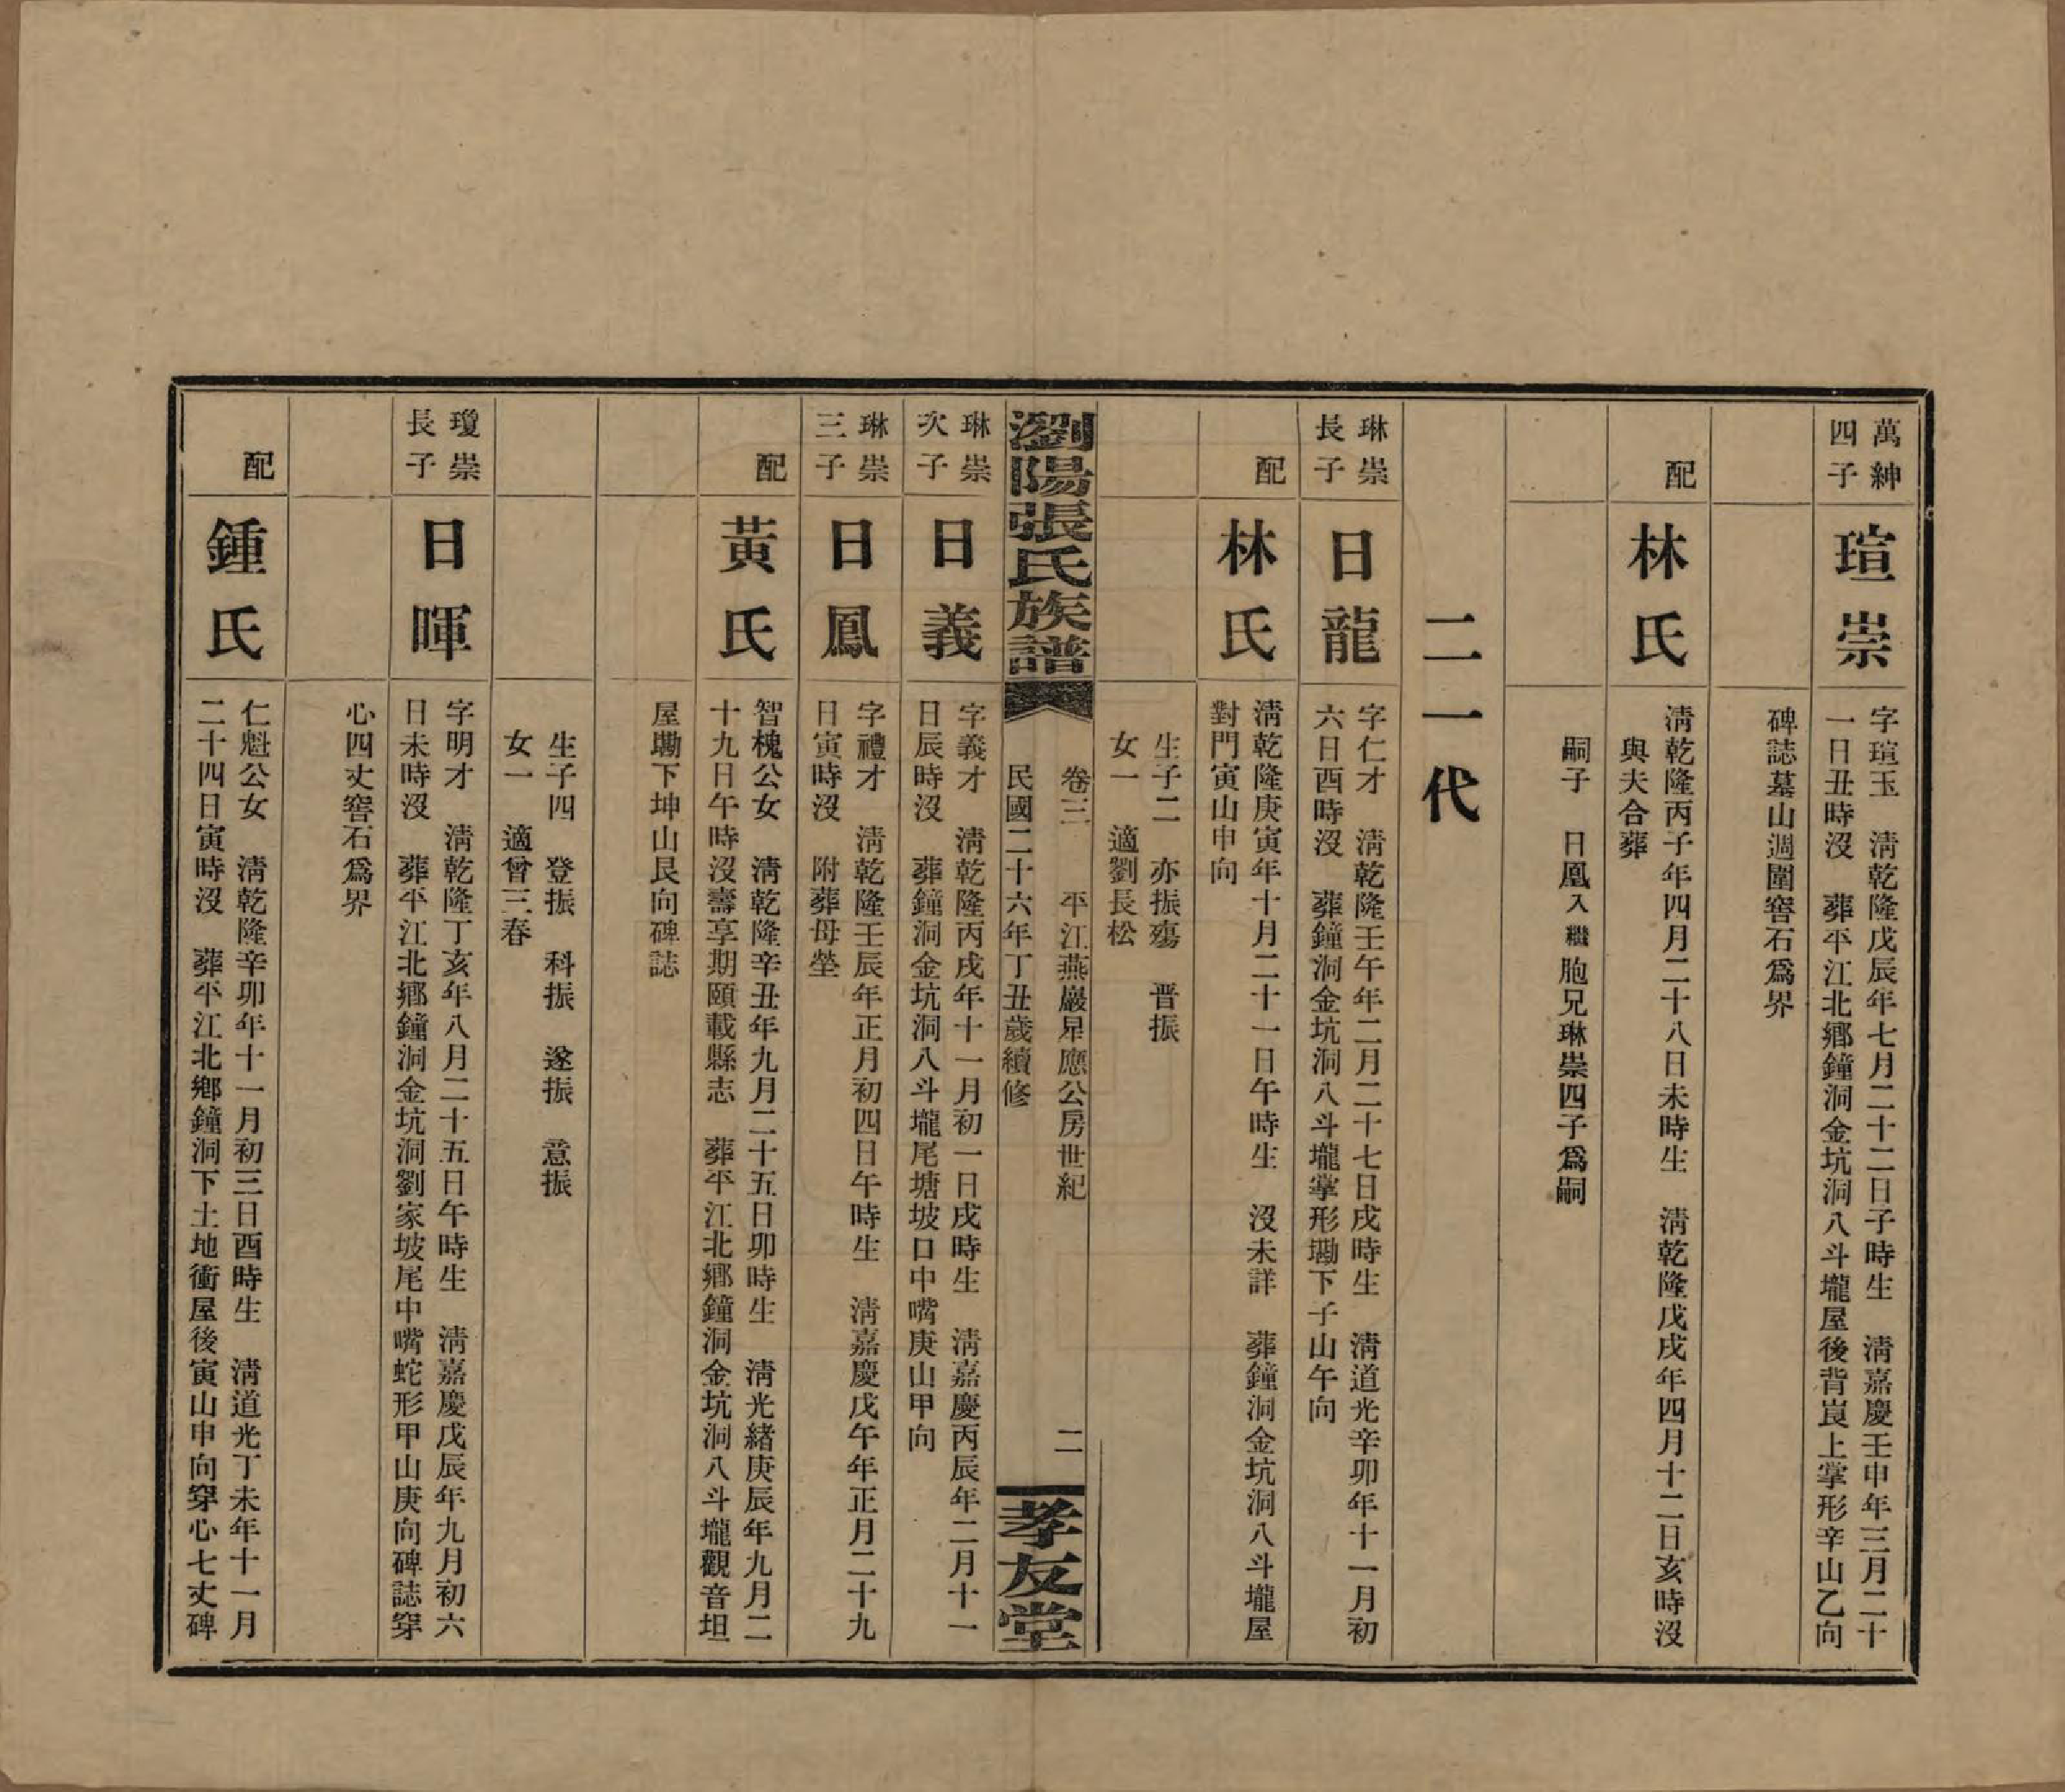 萬紳
四子
瑄崇
字瑄玉　清乾隆戊辰年七月二十二日子時生　清嘉慶壬申年三月二十
一日丑時沒　葬平江北鄉鐘洞金坑洞八斗壠屋後背崀上掌形辛山乙向
碑誌墓山週圍窖石爲界
配
林氏
清乾隆丙子年四月二十八日未時生　清乾隆戊戌年四月十二日亥時沒
與夫合葬
嗣子　日鳳入繼胞兄琳崇四子爲嗣
二一代
琳崇
長子
日龍
字仁才　清乾隆壬午年二月二十七日戌時生　清道光辛卯年十一月初
六日酉時沒　葬鐘洞金坑洞八斗壠掌形墈下子山午向
配
林氏
清乾隆庚寅年十月二十一日午時生　沒未詳　葬鐘洞金坑洞八斗壠屋
對門寅山申向
生子二　亦振殤　晋振
女一　適劉長松
瀏陽張氏族譜
卷三　平江燕巖星應公房世紀　二
民國二十六年丁丑歲續修
孝友堂
琳崇
次子
日義
字義才　清乾隆丙戌年十一月初一日戌時生　清嘉慶丙辰年二月十一
日辰時沒　葬鐘洞金坑洞八斗壠尾塘坡口中嘴庚山甲向
琳崇
三子
日鳳
字禮才　清乾隆壬辰年正月初四日午時生　清嘉慶戊午年正月二十九
日寅時沒　附葬母塋
配
黃氏
智槐公女　清乾隆辛丑年九月二十五日卯時生　清光緒庚辰年九月二
十九日午時沒壽享期頤載縣志　葬平江北鄉鐘洞金坑洞八斗壠觀音坦
屋墈下坤山艮向碑誌
生子四　登振　科振　遂振　意振
女一　適曾三春
瓊崇
長子
日暉
字明才　清乾隆丁亥年八月二十五日午時生　清嘉慶戊辰年九月初六
日未時沒　葬平江北鄉鐘洞金坑洞劉家坡尾中嘴蛇形甲山庚向碑誌穿
心四丈窖石爲界
配
鍾氏
仁魁公女　清乾隆辛卯年十一月初三日酉時生　清道光丁未年十一月
二十四日寅時沒　葬平江北鄉鐘洞下土地衝屋後寅山申向穿心七丈碑